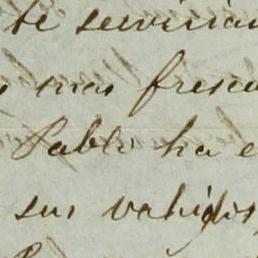 te servirian
mas fresca
Pablo ha e
sus vahidos